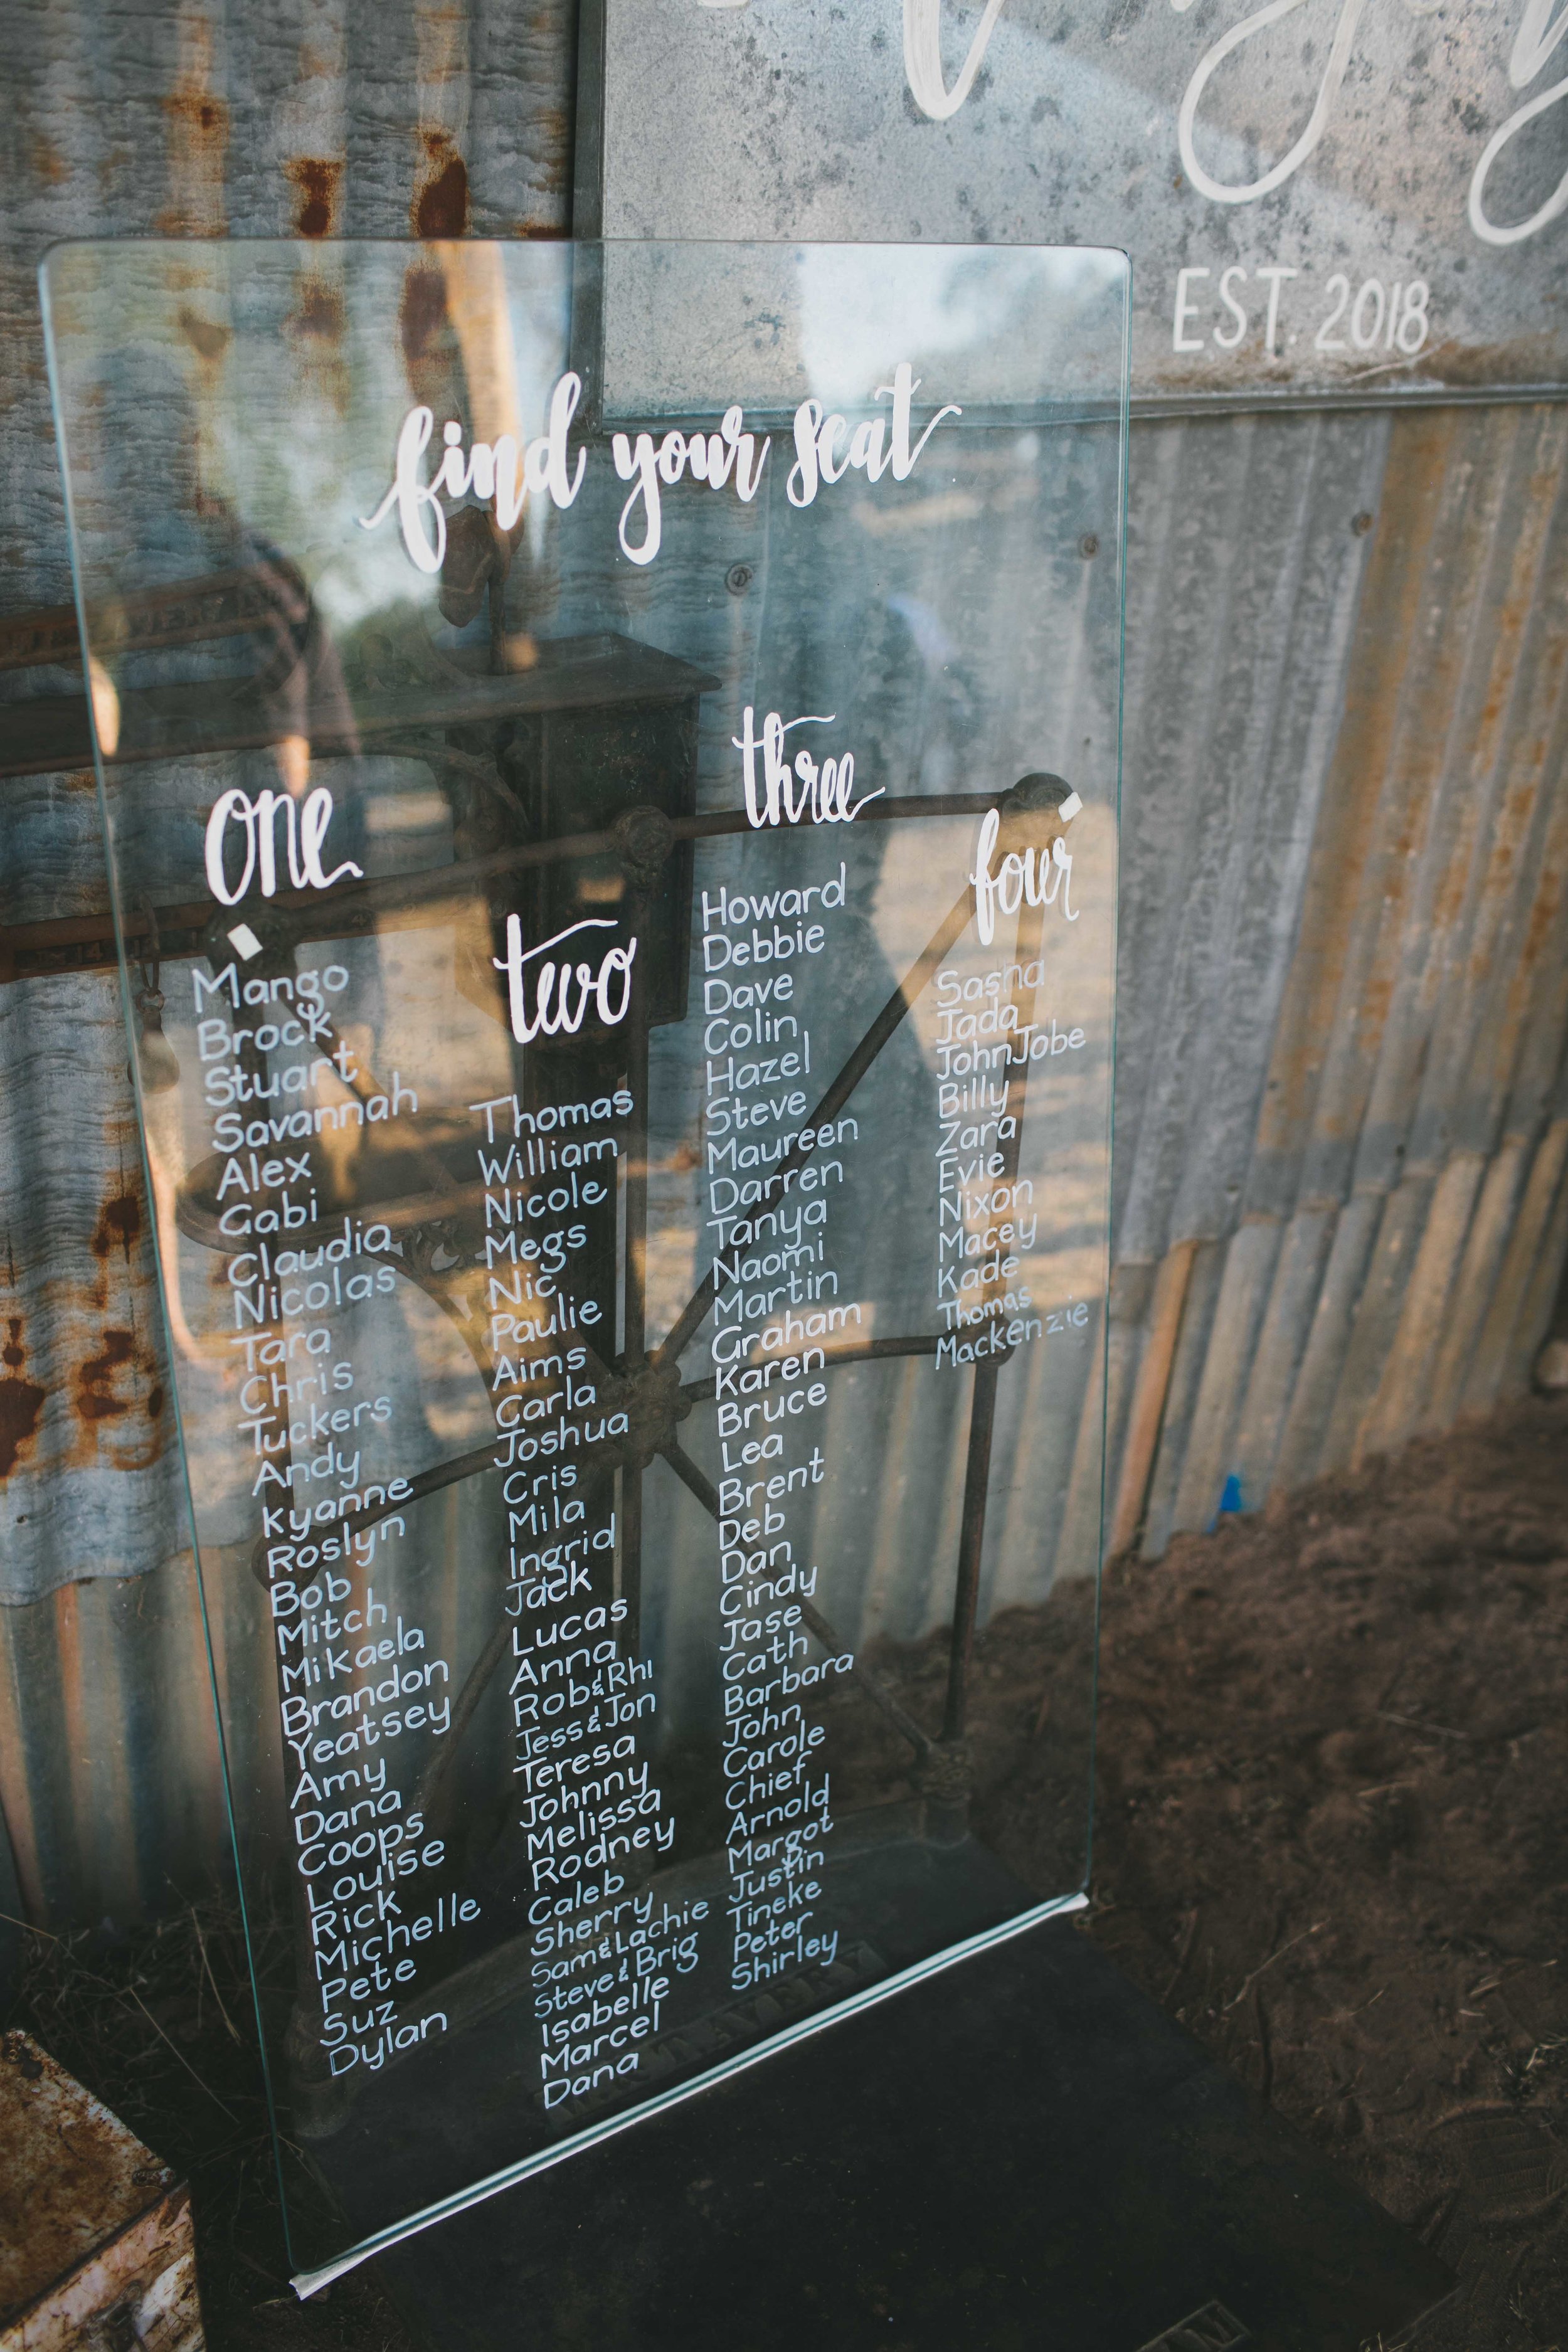 EST. 2018
find your seat
one
Mango
Brock
Stuart
Savannah
Alex
Gabi
Claudia
Nicolas
Tara
Chris
Tuckers
Andy
Kyanne
Roslyn
Bob
Mitch
Mikaela
Brandon
Yeatsey
Amy
Dana
Coops
Louise
Rick
Michelle
Pete
Suz
Dylan
two
Thomas
William
Nicole
Megs
Nic
Paulie
Aims
Carla
Joshua
Cris
Mila
Ingrid
Jack
Lucas
Anna
Rob & Rhi
Jess & Jon
Teresa
Johnny
Melissa
Rodney
Caleb
Sherry
Sam & Lachie
Steve & Brig
Isabelle
Marcel
Dana
three
Howard
Debbie
Dave
Colin
Hazel
Steve
Maureen
Darren
Tanya
Naomi
Martin
Graham
Karen
Bruce
Lea
Brent
Deb
Dan
Cindy
Jase
Cath
Barbara
John
Carole
Chief
Arnold
Margot
Justin
Tineke
Peter
Shirley
four
Sasha
Jada
John Jobe
Billy
Zara
Evie
Nixon
Macey
Kade
Thomas
Mackenzie